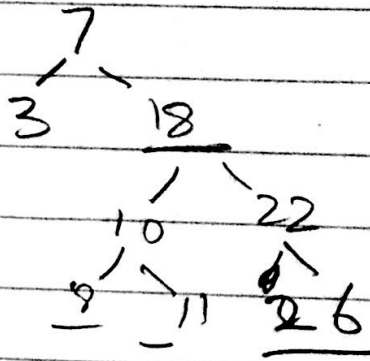 7
3 18
10 22
8 11 26